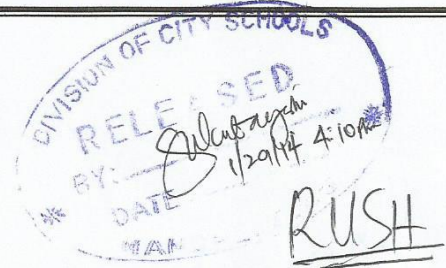 DIVISION OF CITY SCHOOLS
RELEASED
BY:
1/29/14 4:10 PM
DATE
RUSH